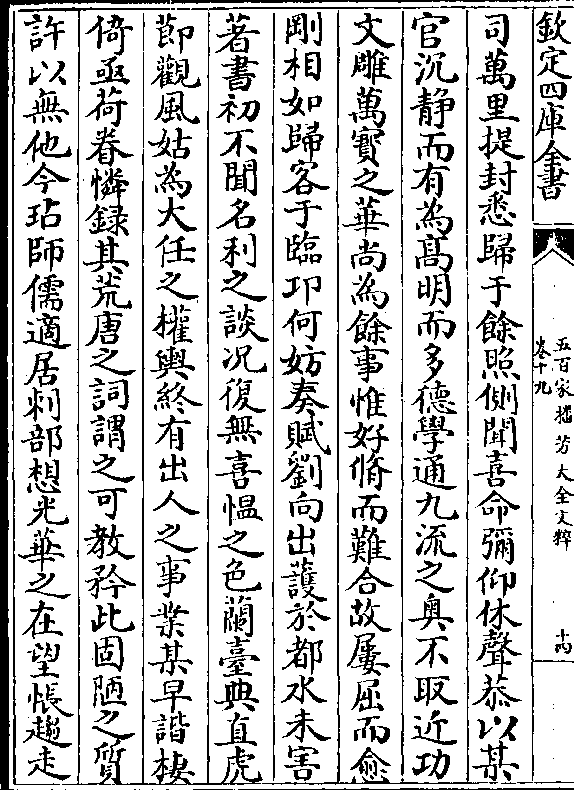 欽定四庫全書
五百家播芳大全文粹
卷十九
十四
司萬里提封悉歸于餘照側聞喜命彌仰休聲恭以某
官沉静而有為髙明而多德學通九流之奥不取近功
文雕萬寳之華尚為餘事惟好脩而難合故屢屈而愈
剛相如歸客于臨邛何妨奏賦劉向出䕶於都水未害
著書初不聞名利之談况復無喜愠之色蘭臺典直虎
節觀風姑為大任之權輿終有出人之事業某早諧棲
倚亟荷眷憐録其荒唐之詞謂之可教矜此固陋之質
許以無他今玷師儒適居刺部想光華之在望悵趨走